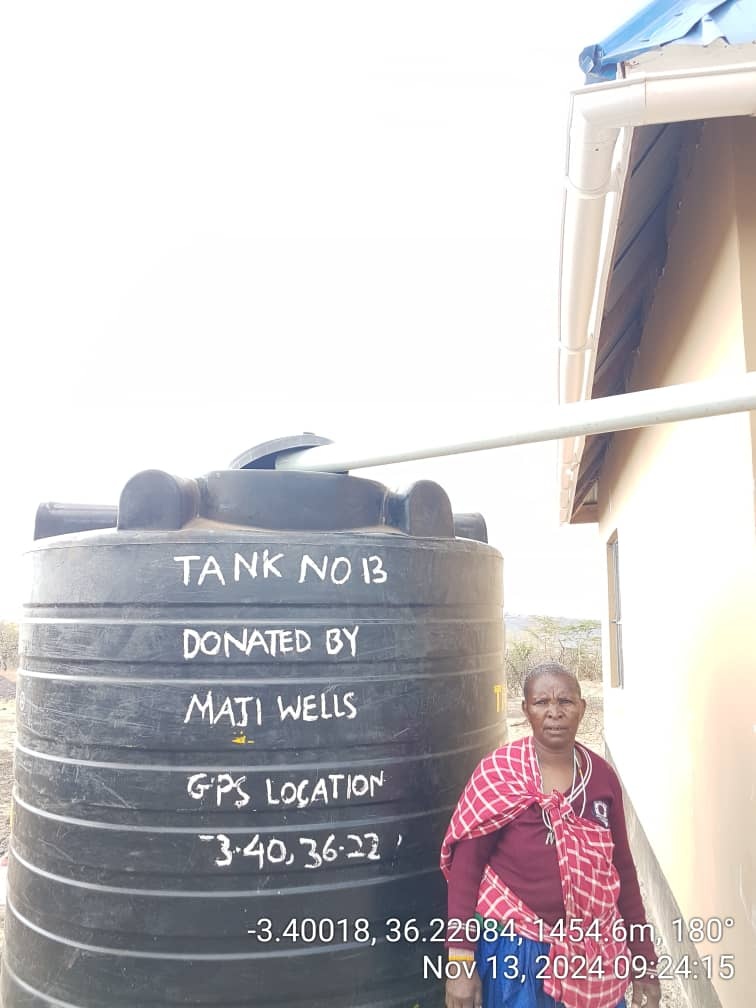 TANK NO 13
DONATED BY
MAJI WELLS
GPS LOCATION
-3.40, 36.22
-3.40018, 36.22084, 1454.6m, 180°
Nov 13, 2024 09:24:15